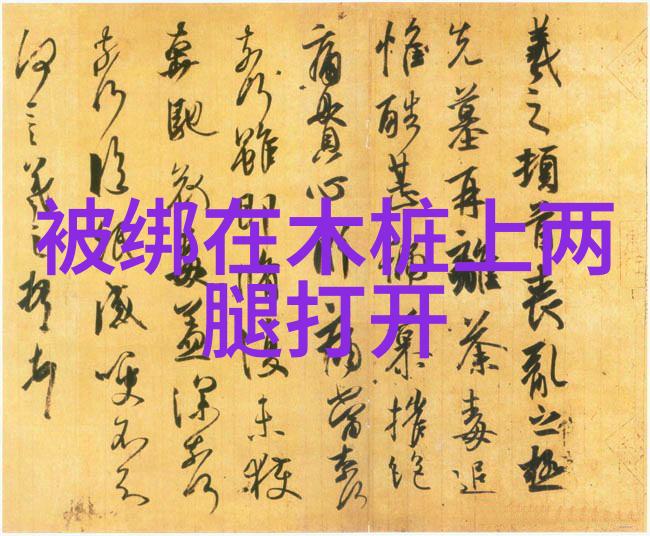 被绑在木桩上两
腿打开
羲之頓首喪亂之極
先墓再離荼毒追
惟酷甚號慕摧絕
痛貫心肝痛當奈何
奈何雖即脩復未獲
奔馳哀毒益深奈何
奈何臨紙感哽不知
何言羲之頓首